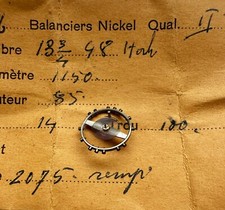 Balanciers Nickel Qual. II
bre 13 3/4 48 Hah
mètre 1150.
uteur 85
14 Troy 100.
t
2075.